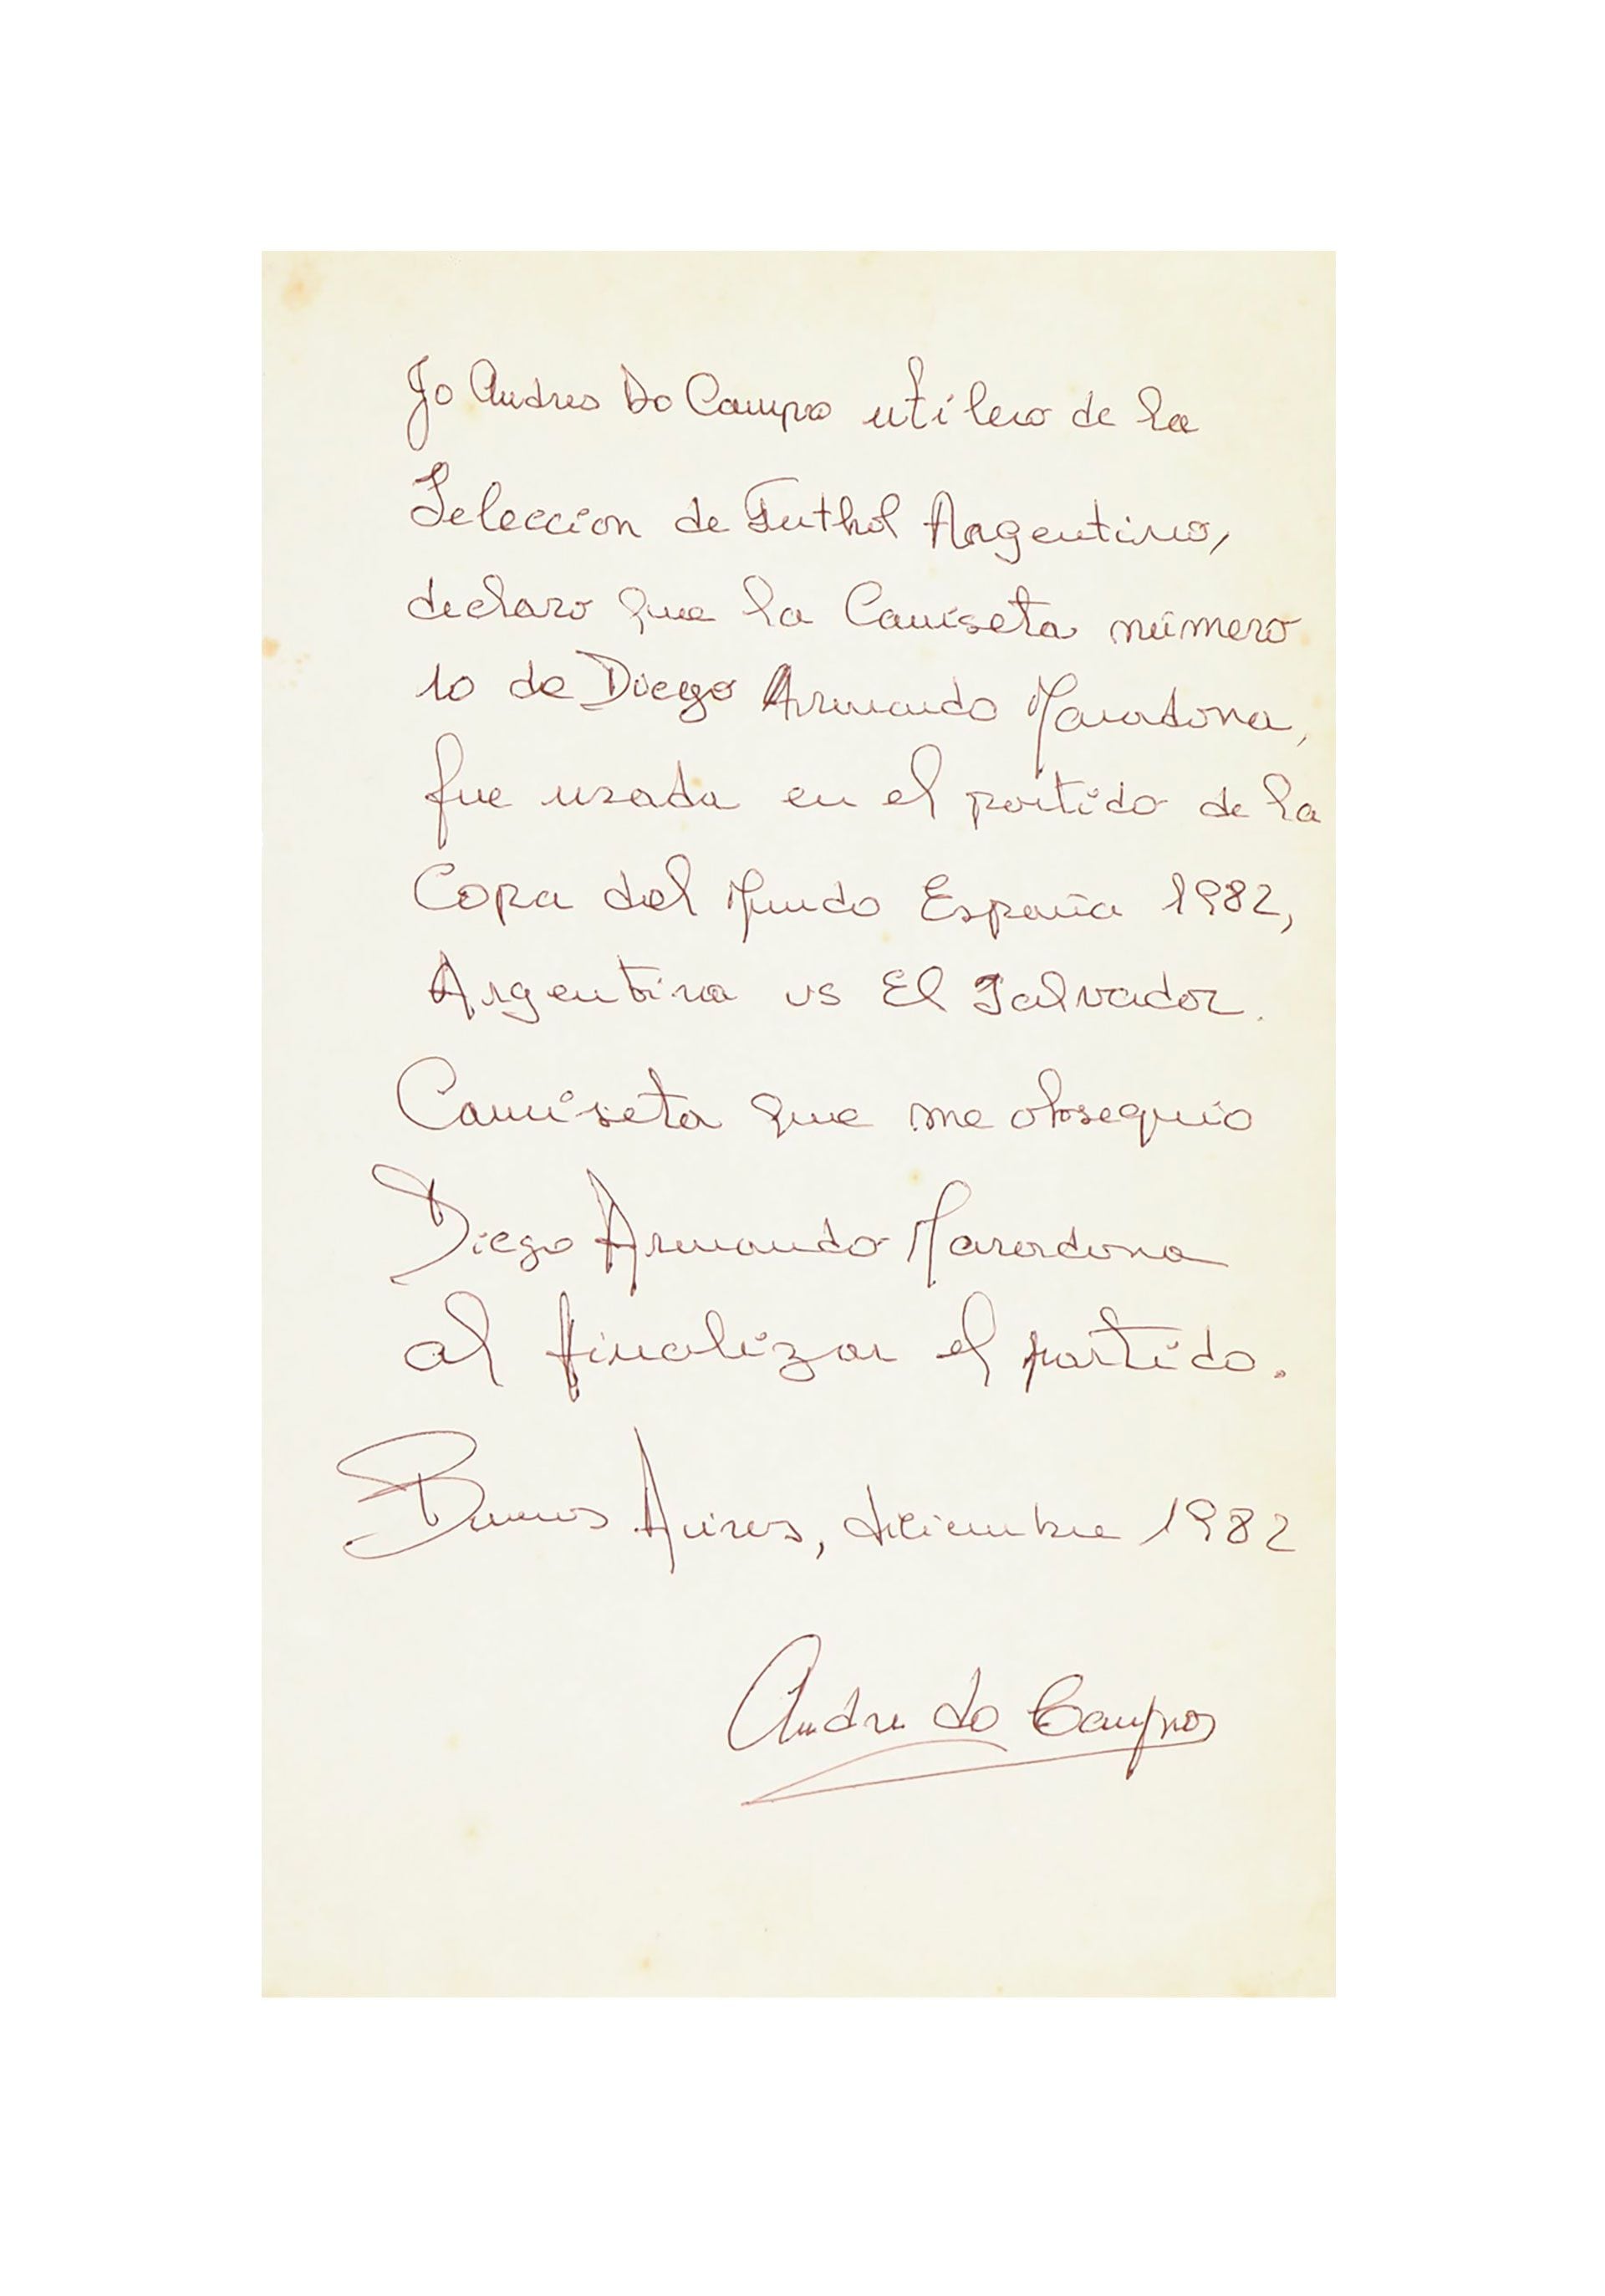 Yo Andres Do Campo utilero de la
Seleccion de Futbol Argentino,
declaro que la Camiseta número
10 de Diego Armando Maradona,
fue usada en el partido de la
Copa del Mundo España 1982,
Argentina vs El Salvador.
Camiseta que me obsequio
Diego Armando Maradona
al finalizar el partido.
Buenos Aires, diciembre 1982
Andres do Campo